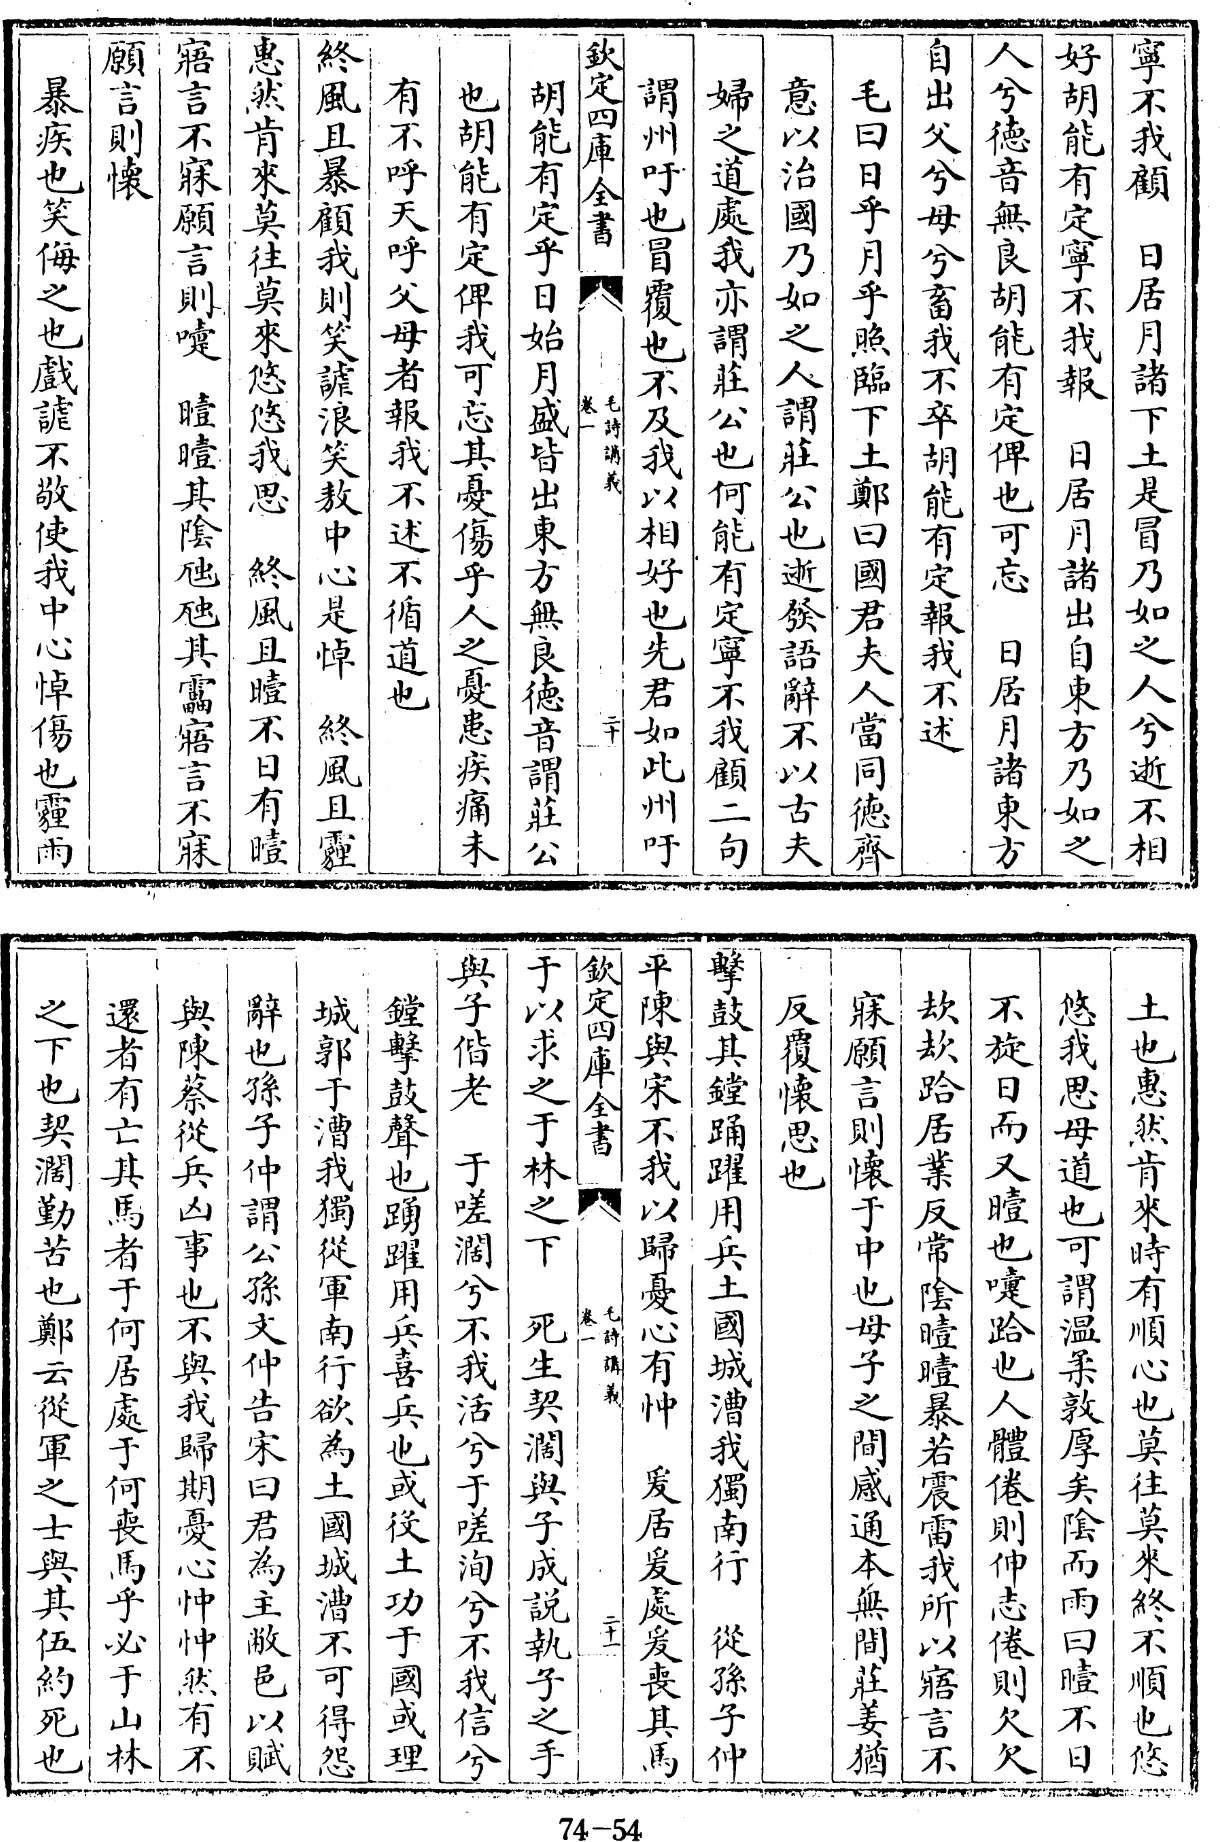 寧不我顧　日居月諸下土是冒乃如之人兮逝不相
好胡能有定寧不我報　日居月諸出自東方乃如之
人兮德音無良胡能有定俾也可忘　日居月諸東方
自出父兮母兮畜我不卒胡能有定報我不述
毛曰日乎月乎照臨下土鄭曰國君夫人當同德齊
意以治國乃如之人謂莊公也逝發語辭不以古夫
婦之道處我亦謂莊公也何能有定寧不我顧二句
謂州吁也冒覆也不及我以相好也先君如此州吁
欽定四庫全書
毛詩講義
卷一
二十
胡能有定乎日始月盛皆出東方無良德音謂莊公
也胡能有定俾我可忘其憂傷乎人之憂患疾痛未
有不呼天呼父母者報我不述不循道也
終風且暴顧我則笑謔浪笑敖中心是悼　終風且霾
惠然肯來莫往莫來悠悠我思　終風且曀不日有曀
寤言不寐願言則嚏　曀曀其陰虺虺其靁寤言不寐
願言則懷
暴疾也笑侮之也戲謔不敬使我中心悼傷也霾雨
土也惠然肯來時有順心也莫往莫來終不順也悠
悠我思母道也可謂温柔敦厚矣陰而雨曰曀不日
不旋日而又曀也嚏跲也人體倦則伸志倦則欠欠
欪欪跲居業反常陰曀曀暴若震雷我所以寤言不
寐願言則懷于中也母子之間感通本無間莊姜猶
反覆懷思也
擊鼓其鏜踊躍用兵土國城漕我獨南行　從孫子仲
平陳與宋不我以歸憂心有忡　爰居爰處爰喪其馬
欽定四庫全書
毛詩講義
卷一
二十一
于以求之于林之下　死生契濶與子成説執子之手
與子偕老　于嗟濶兮不我活兮于嗟洵兮不我信兮
鏜擊鼓聲也踴躍用兵喜兵也或役土功于國或理
城郭于漕我獨從軍南行欲為土國城漕不可得怨
辭也孫子仲謂公孫文仲告宋曰君為主敝邑以賦
與陳蔡從兵凶事也不與我歸期憂心忡忡然有不
還者有亡其馬者于何居處于何喪馬乎必于山林
之下也契濶勤苦也鄭云從軍之士與其伍約死也
74-54